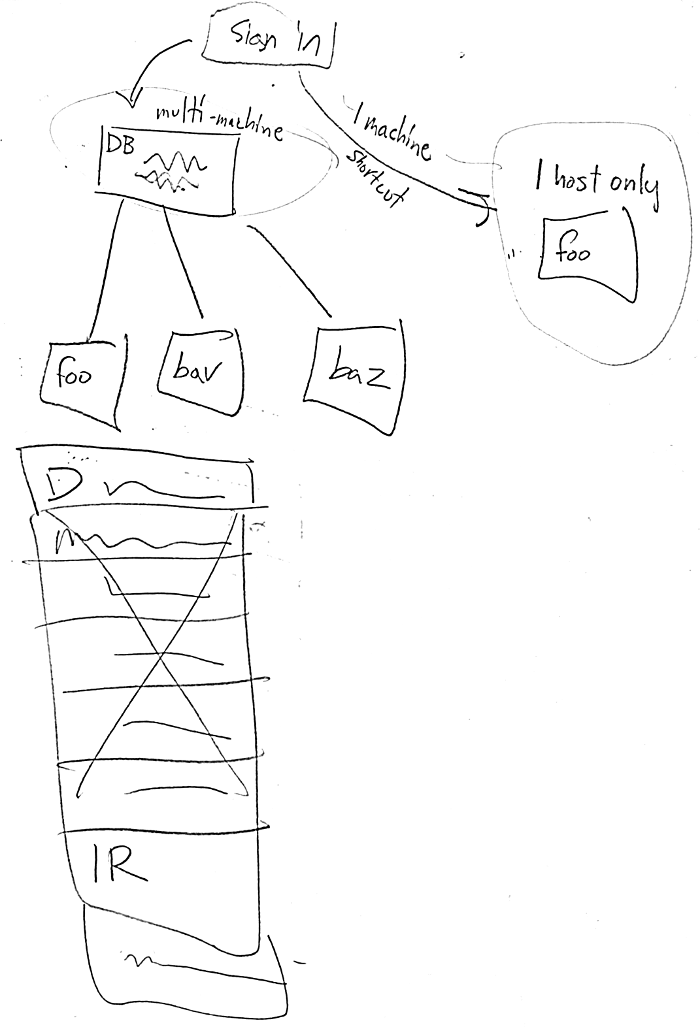 Sign in
multi-machine
1 machine
shortcut
DB
1 host only
foo
foo
bar
baz
D
IR